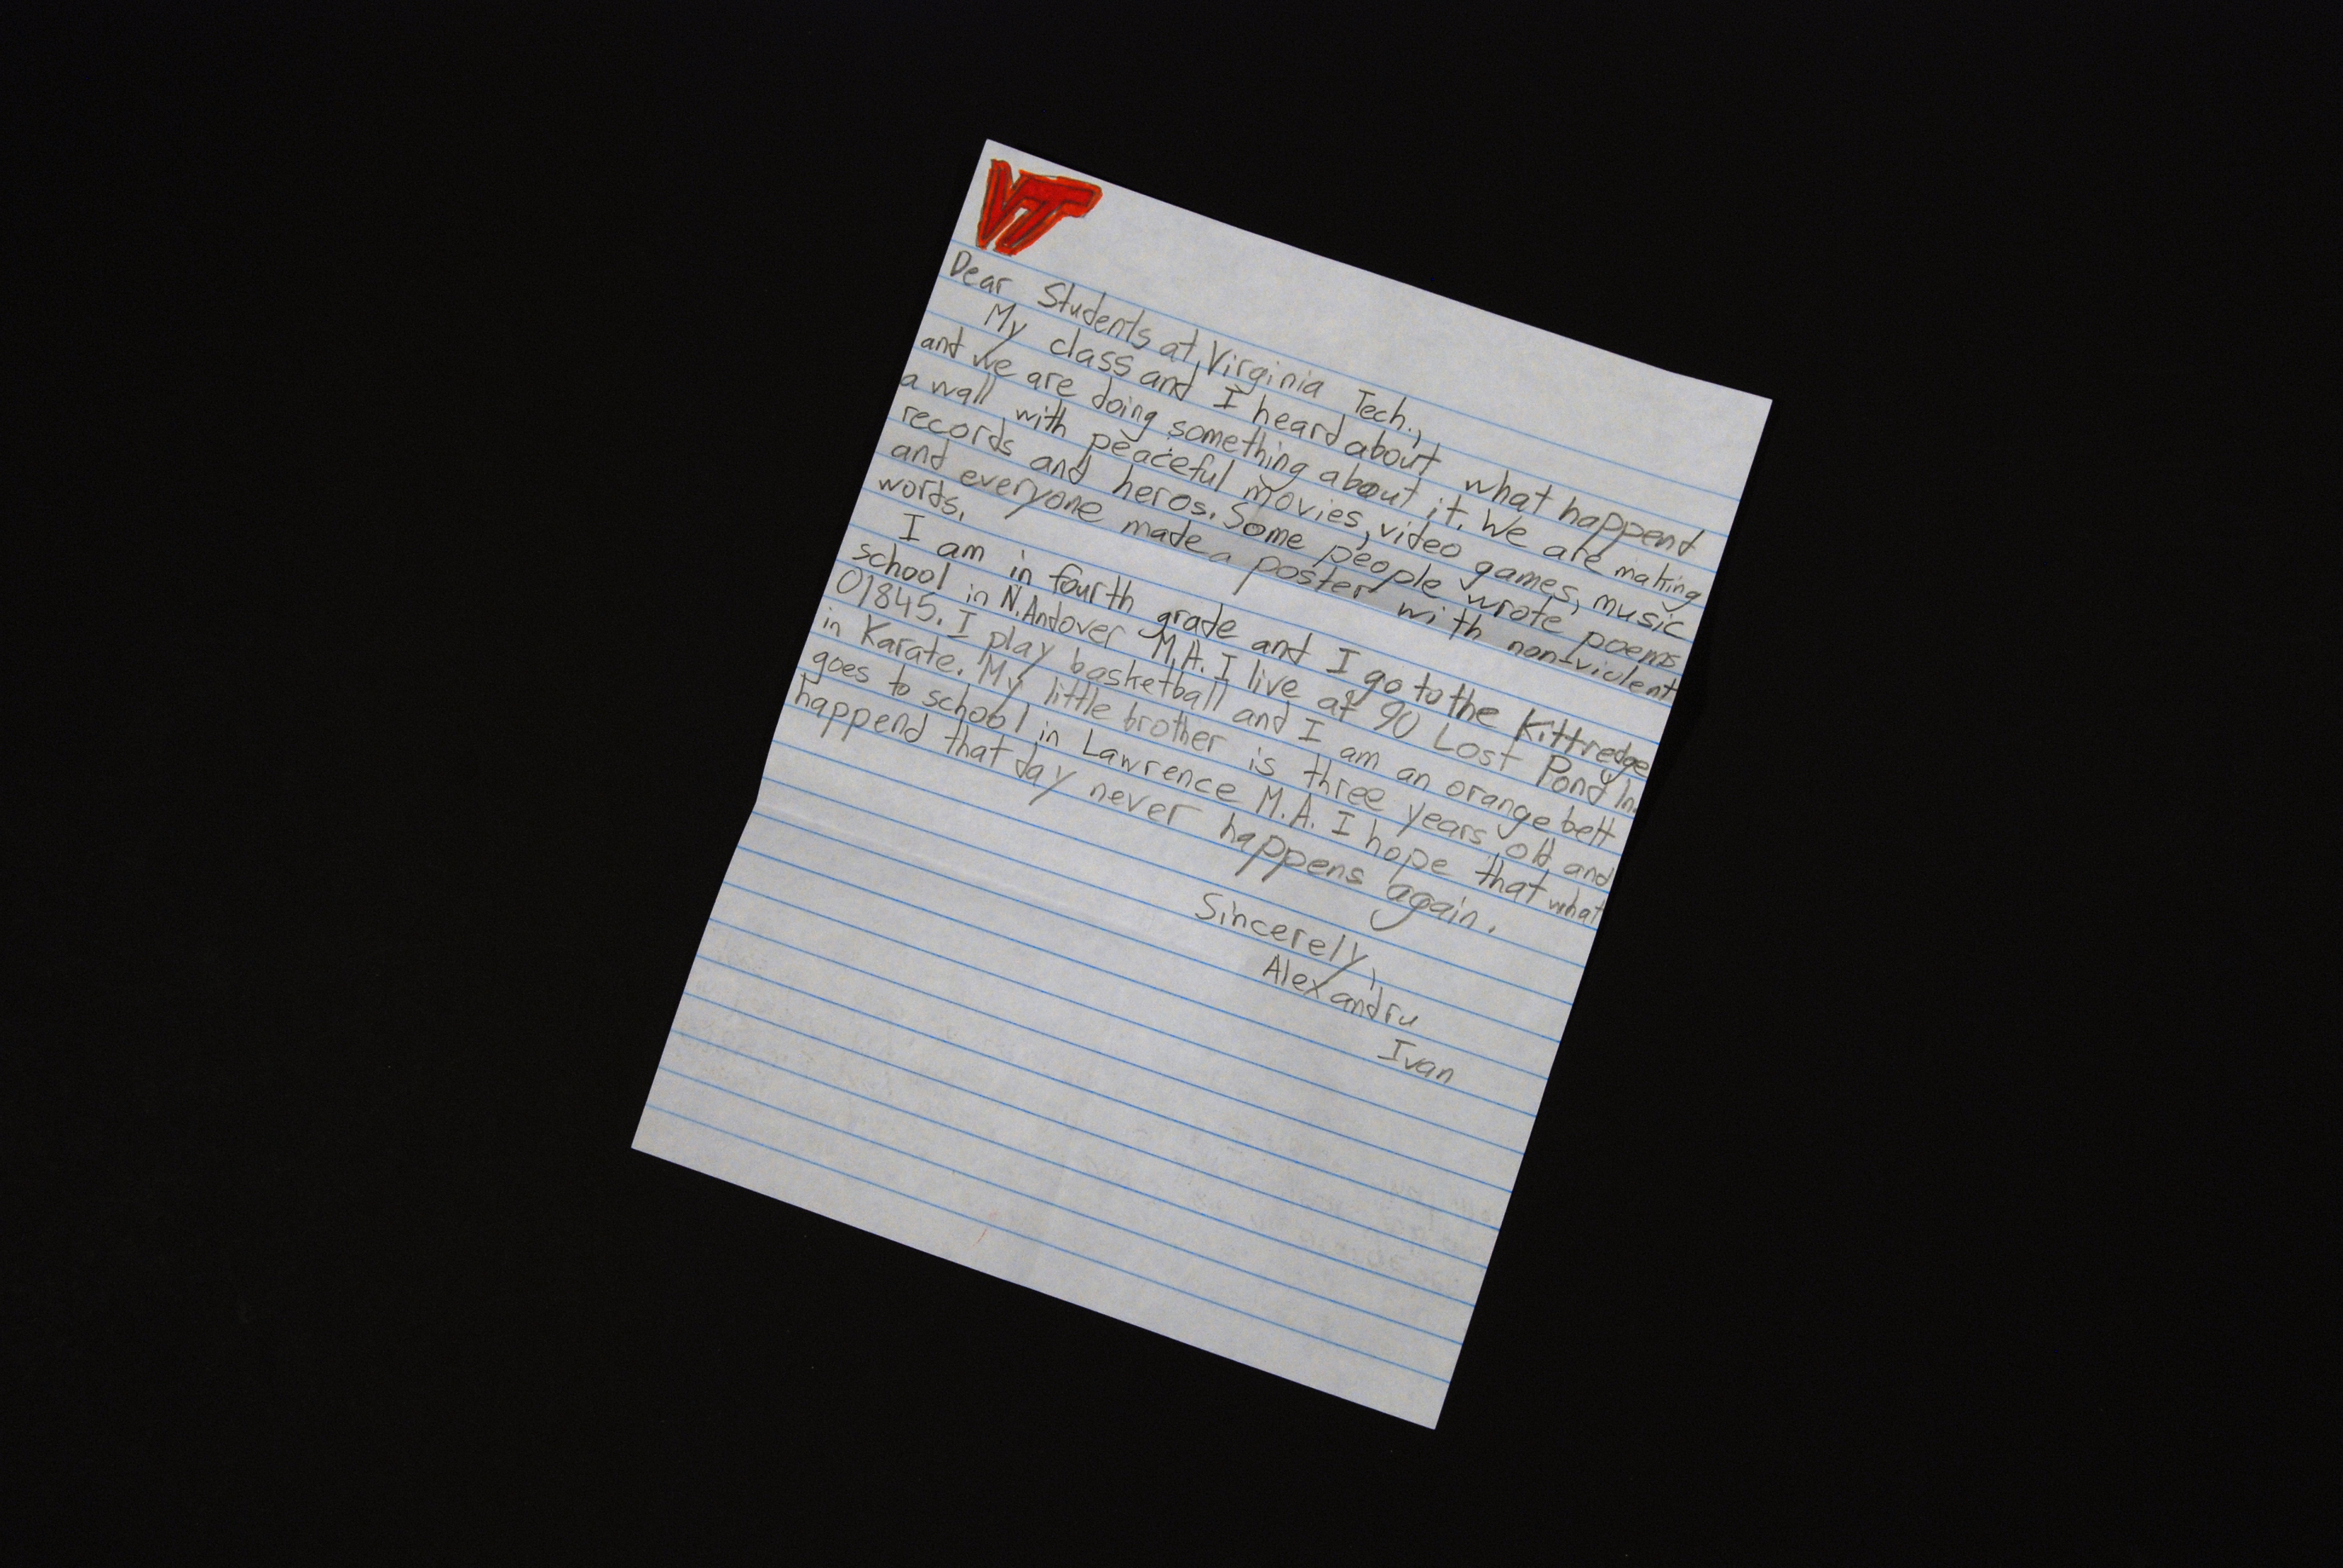 VT
Dear Students at Virginia Tech.,
My class and I heard about what happend
and we are doing something about it. We are making
a wall with peaceful movies, video games, music
records and heros. Some people wrote poems
and everyone made a poster with non-violent
words.
I am in fourth grade and I go to the Kittredge
school in N.Andover M.A. I live at 90 Lost Pond ln.
01845. I play basketball and I am an orange belt
in Karate. My little brother is three years old and
goes to school in Lawrence M.A. I hope that what
happend that day never happens again.
Sincerely,
Alexandru
Ivan